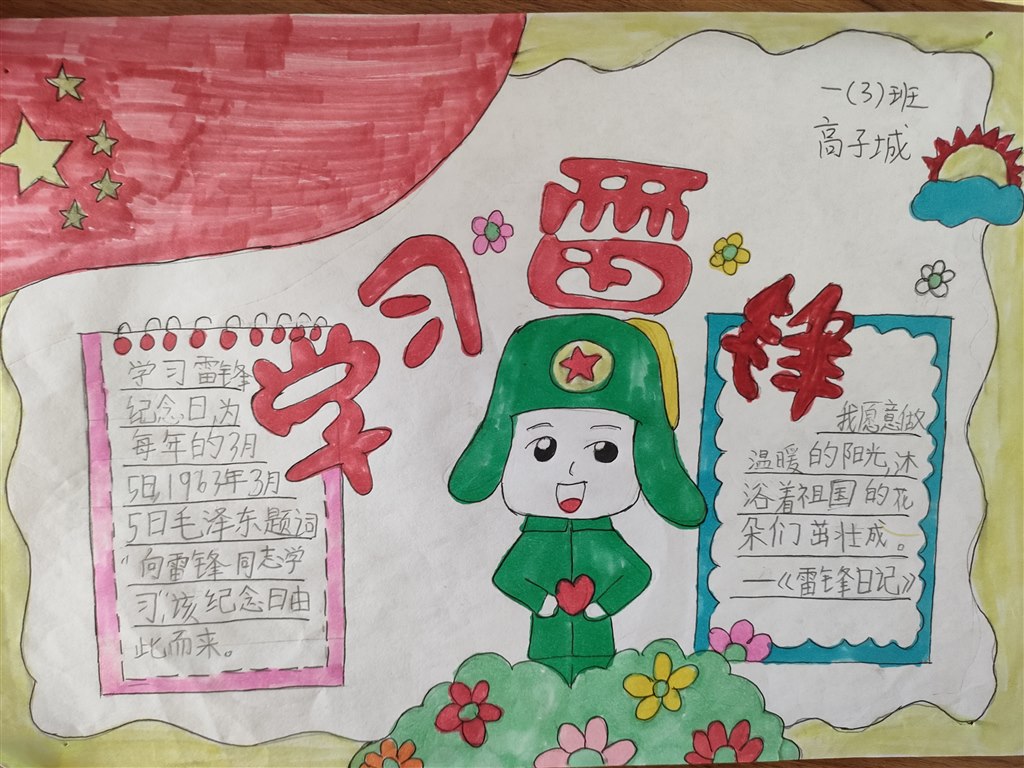 一(3)班
高子城
学习雷锋
学习雷锋
纪念日,为
每年的3月
5日,1963年3月
5日毛泽东题词
“向雷锋同志学
习”,该纪念日由
此而来。
我愿意做
温暖的阳光,沐
浴着祖国的花
朵们茁壮成。
—《雷锋日记》